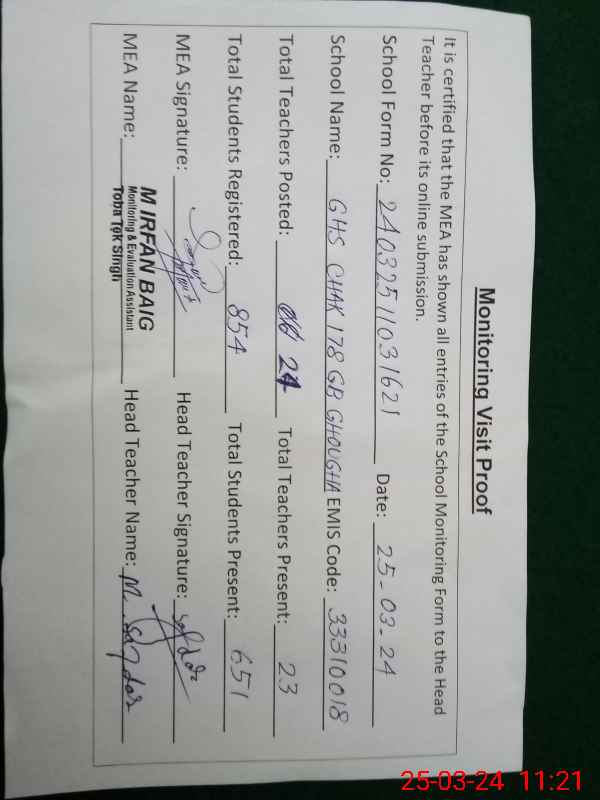 Monitoring Visit Proof
It is certified that the MEA has shown all entries of the School Monitoring Form to the Head
Teacher before its online submission.
School Form No: 24032511031621 Date: 25-03-24
School Name: GHS CHAK 178 GB GHOUGHA EMIS Code: 33310018
Total Teachers Posted: 24 Total Teachers Present: 23
Total Students Registered: 854 Total Students Present: 651
MEA Signature: Head Teacher Signature:
MEA Name: M IRFAN BAIG Head Teacher Name: M.
Monitoring & Evaluation Assistant
Toba Tek Singh
25-03-24 11:21